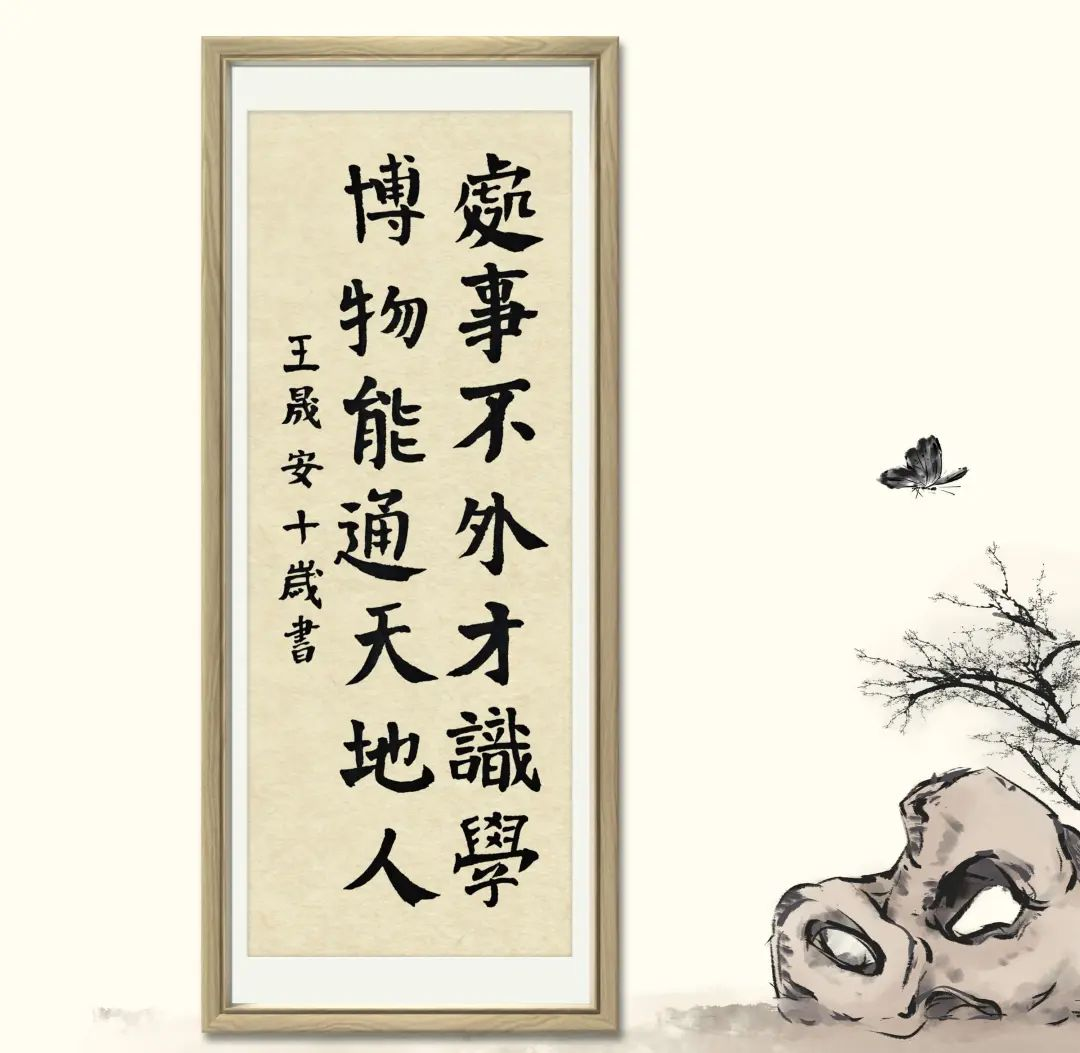 處事不外才識學
博物能通天地人
王晟安十歲書